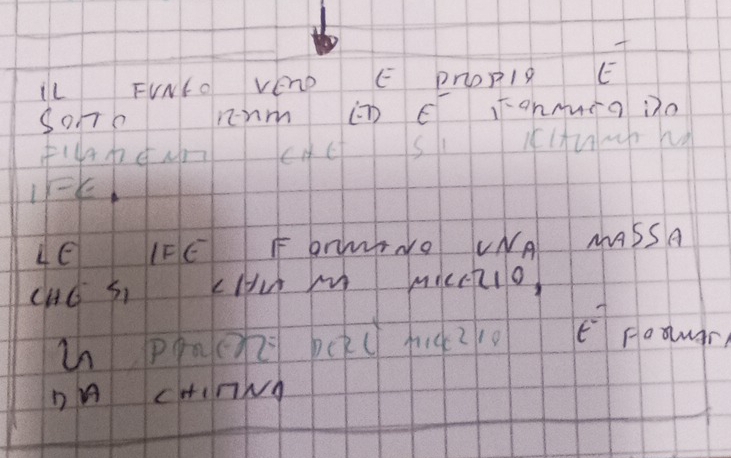 IL FUNGO VERO E PROPIO È
SOTTO TERRA ED È FORMATO DA
FILAMENTI CHE SI CHIAMANO
IFE.
LE IFE FORMANO UNA MASSA
CHE SI CHIAMA MICELIO,
LA PARETE DEL MICELIO È FORMATA
DA CHITINA